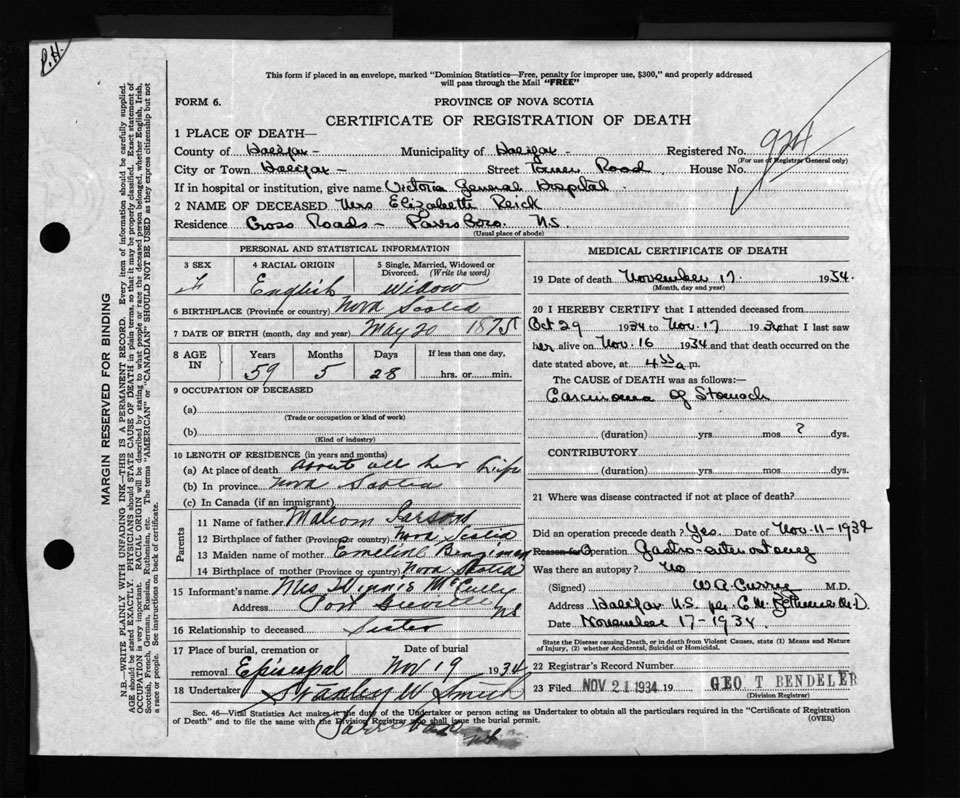 P.H.
This form if placed in an envelope, marked "Dominion Statistics—Free, penalty for improper use, $300," and properly addressed
will pass through the Mail "FREE"
FORM 6.
PROVINCE OF NOVA SCOTIA
CERTIFICATE OF REGISTRATION OF DEATH
924
1 PLACE OF DEATH—
County of Halifax - Municipality of Halifax - Registered No.
(For use of Registrar General only)
City or Town Halifax - Street Tower Road House No.
If in hospital or institution, give name Victoria General Hospital
2 NAME OF DECEASED Mrs Elizabeth Reick
Residence Cross Roads - Parrsboro. N.S.
(Usual place of abode)
PERSONAL AND STATISTICAL INFORMATION
3 SEX 4 RACIAL ORIGIN 5 Single, Married, Widowed or Divorced. (Write the word)
F English Widow
6 BIRTHPLACE (Province or country) Nova Scotia
7 DATE OF BIRTH (month, day and year) May 20 1875
8 AGE IN Years Months Days If less than one day,
59 5 28 hrs. or min.
9 OCCUPATION OF DECEASED
(a)
(Trade or occupation or kind of work)
(b)
(Kind of industry)
10 LENGTH OF RESIDENCE (in years and months)
(a) At place of death about all her life
(b) In province Nova Scotia
(c) In Canada (if an immigrant)
Parents
11 Name of father
12 Birthplace of father (Province or country) Nova Scotia
13 Maiden name of mother
14 Birthplace of mother (Province or country) Nova Scotia
15 Informant's name Mrs McCully
Address Port Greville NS
16 Relationship to deceased Sister
17 Place of burial, cremation or removal Episcopal Date of burial Nov 19 1934
18 Undertaker Stanley W Smith
Address Parrsboro NS
MEDICAL CERTIFICATE OF DEATH
19 Date of death November 17. 1934.
(Month, day and year)
20 I HEREBY CERTIFY that I attended deceased from
Oct 29 1934 to Nov. 17 1934 that I last saw
her alive on Nov. 16 1934 and that death occurred on the
date stated above, at 4 55 a.m.
The CAUSE of DEATH was as follows:—
Carcinoma of Stomach
(duration) yrs mos ? dys.
CONTRIBUTORY
(duration) yrs. mos. dys.
21 Where was disease contracted if not at place of death?
Did an operation precede death? Yes. Date of Nov-11-1934
Reason for Operation
Was there an autopsy? No
(Signed) W A Curry M.D.
Address Halifax N.S. per
Date November 17-1934.
State the Disease causing Death, or in death from Violent Causes, state (1) Means and Nature
of Injury, (2) whether Accidental, Suicidal or Homicidal.
22 Registrar's Record Number
23 Filed NOV 21 1934 19 GEO T BENDELER
(Division Registrar)
Sec. 46—Vital Statistics Act makes it the duty of the Undertaker or person acting as Undertaker to obtain all the particulars required in the "Certificate of Registration
of Death" and to file the same with the Division Registrar who shall issue the burial permit. (OVER)
MARGIN RESERVED FOR BINDING
N.B.—WRITE PLAINLY WITH UNFADING INK—THIS IS A PERMANENT RECORD. Every item of information should be carefully supplied.
AGE should be stated EXACTLY. PHYSICIANS should STATE CAUSE OF DEATH in plain terms, so that it may be properly classified. Exact statement of
OCCUPATION is very important. RACIAL ORIGIN will be described by stating to what people or race the deceased person belonged, whether English, Irish,
Scottish, French, German, Russian, Ruthenian, etc. The terms "AMERICAN" or "CANADIAN" SHOULD NOT BE USED as they express citizenship but not
a race or people. See instructions on back of certificate.